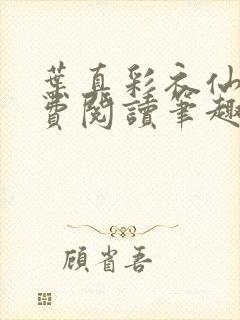 葉真彩衣仙
費閱讀筆趣
顧省吾